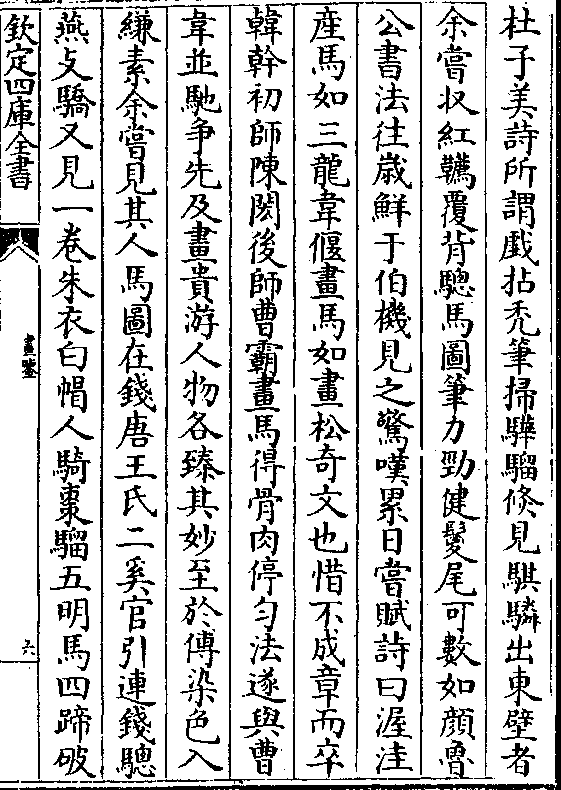 杜子美詩所謂戲拈秃筆掃驊騮倐見騏驎出東壁者
余嘗収紅韉覆背驄馬圖筆力勁健鬉尾可數如顔魯
公書法往歲鮮于伯機見之驚嘆累日嘗賦詩曰渥洼
産馬如三龍韋偃畫馬如畫松奇文也惜不成章而卒
韓幹初師陳閎後師曹霸畫馬得骨肉停勻法遂與曹
韋並馳争先及畫貴游人物各臻其妙至於傅染色入
縑素余嘗見其人馬圖在錢唐王氏二奚官引連錢驄
燕支驕又見一卷朱衣白帽人騎棗騮五明馬四蹄破
欽定四庫全書
畫鑒
六